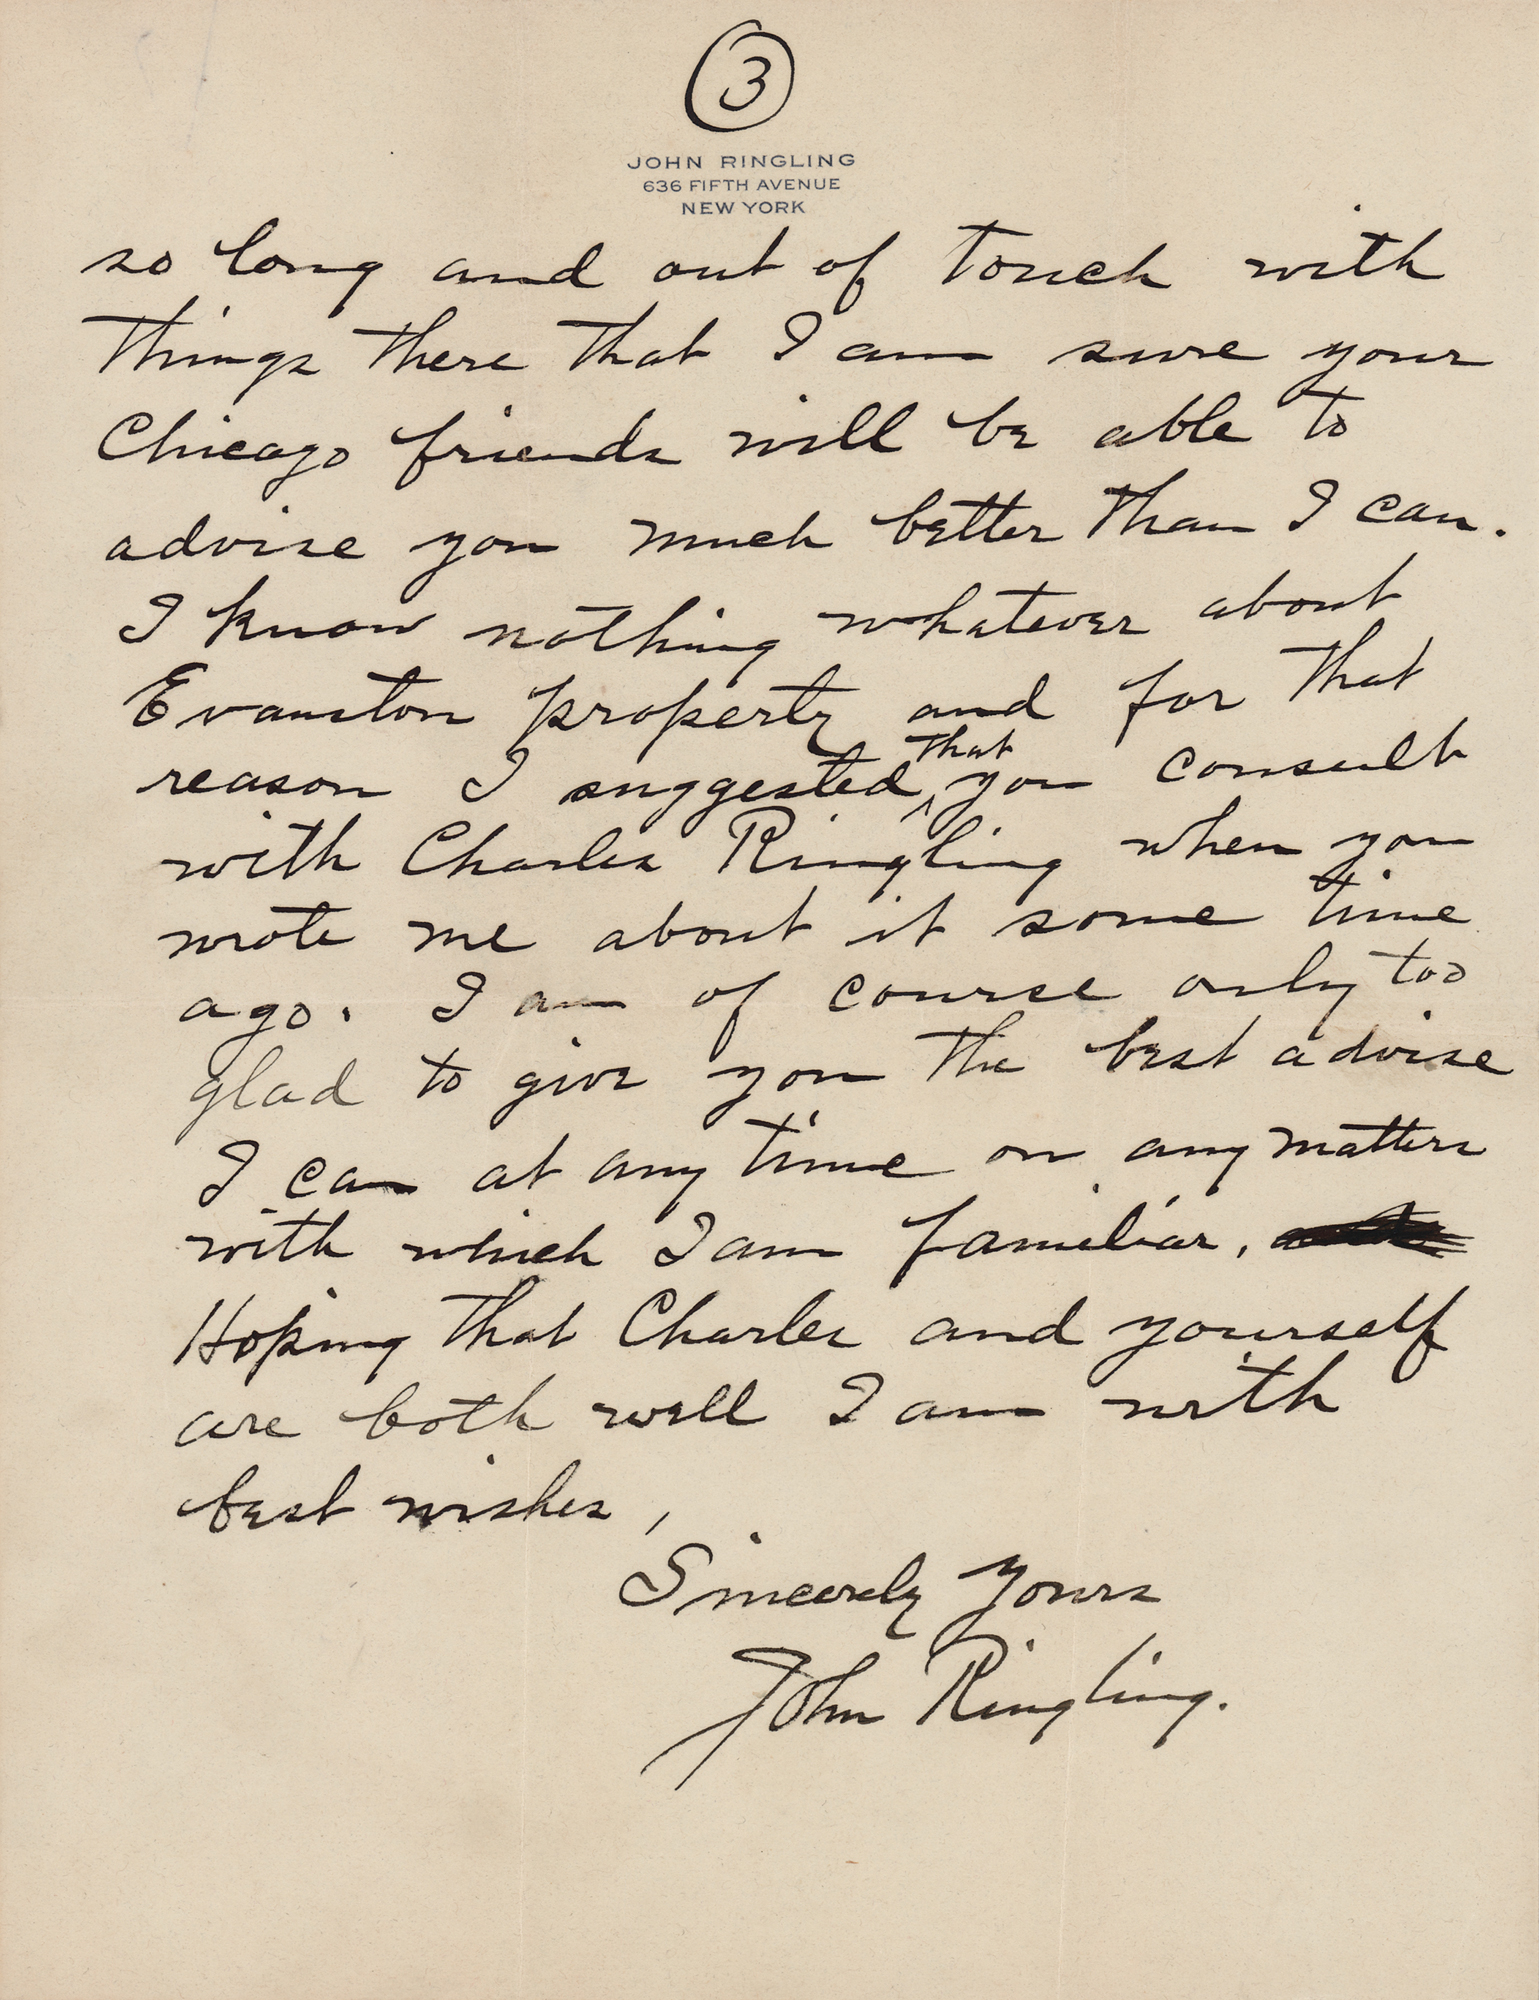 3
JOHN RINGLING
636 FIFTH AVENUE
NEW YORK
so long and out of touch with
things there that I am sure your
Chicago friends will be able to
advise you much better than I can.
I know nothing whatever about
Evanston property and for that
reason I suggested that you consult
with Charles Ringling when you
wrote me about it some time
ago. I am of course only too
glad to give you the best advise
I can at any time on any matters
with which I am familiar.
Hoping that Charles and yourself
are both well I am with
best wishes,
Sincerely yours
John Ringling.